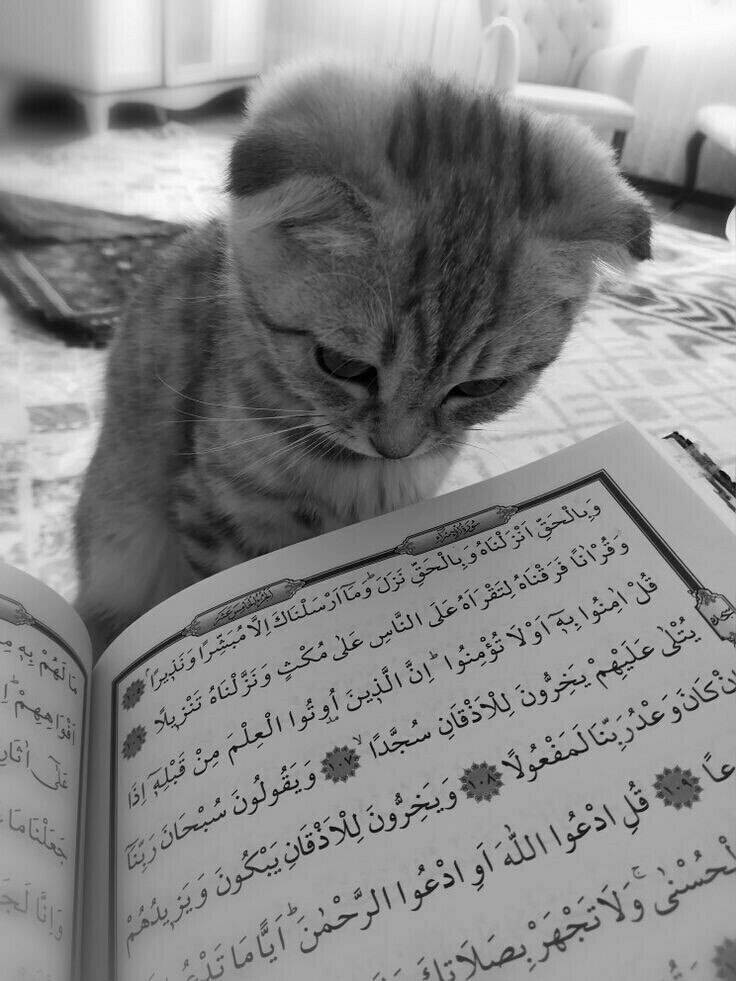 سُورَةُ الْاِسْرَاءِ
اَلْجُزْءُ الْخَامِسَ عَشَرَ
وَبِالْحَقِّ اَنْزَلْنَاهُ وَبِالْحَقِّ نَزَلَۜ وَمَٓا اَرْسَلْنَاكَ اِلَّا مُبَشِّرًا وَنَذٖيرًا ١٠٥
وَقُرْاٰنًا فَرَقْنَاهُ لِتَقْرَاَهُ عَلَى النَّاسِ عَلٰى مُكْثٍ وَنَزَّلْنَاهُ تَنْزٖيلًا ١٠٦
قُلْ اٰمِنُوا بِهٖٓ اَوْ لَا تُؤْمِنُواۜ اِنَّ الَّذٖينَ اُو۫تُوا الْعِلْمَ مِنْ قَبْلِهٖٓ اِذَا
يُتْلٰى عَلَيْهِمْ يَخِرُّونَ لِلْاَذْقَانِ سُجَّدًا ١٠٧ وَيَقُولُونَ سُبْحَانَ رَبِّنَٓا
اِنْ كَانَ وَعْدُ رَبِّنَا لَمَفْعُولًا ١٠٨ وَيَخِرُّونَ لِلْاَذْقَانِ يَبْكُونَ وَيَزٖيدُهُمْ
عًا ١٠٩ قُلِ ادْعُوا اللّٰهَ اَوِ ادْعُوا الرَّحْمٰنَۜ اَيًّا مَا تَدْعُ
لْحُسْنٰىۚ وَلَا تَجْهَرْ بِصَلَاتِكَ
سجدة
مَا لَهُمْ بِهٖ
اَفْوَاهِهِمْ
عَلٰٓى اٰثَارِ
جَعَلْنَا مَا
وَاِنَّا لَجَ